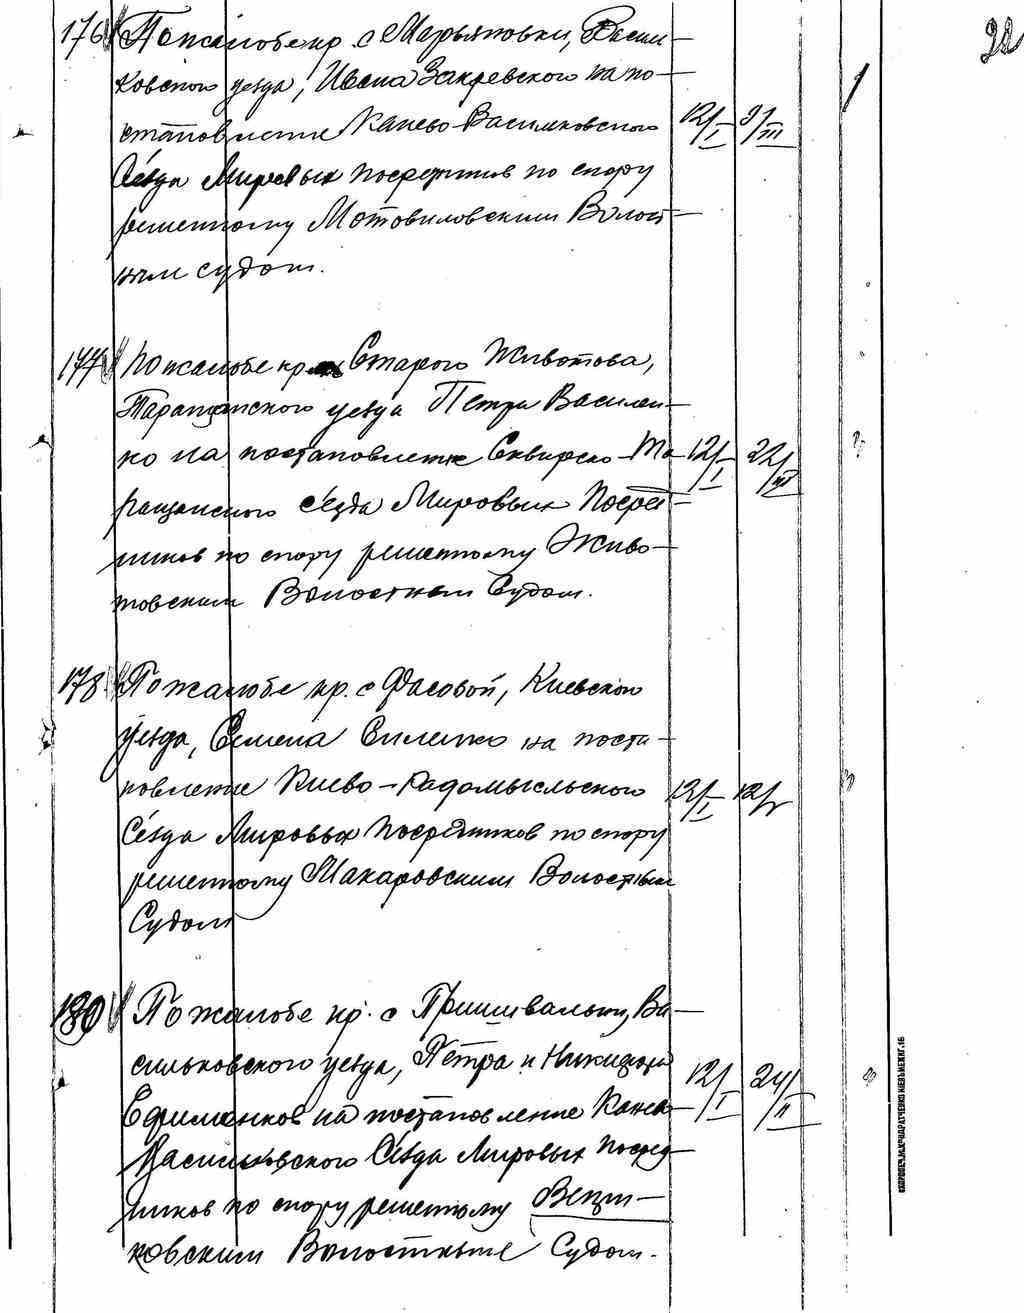 22
176 По жалобе кр. с Марьяновки, Василь-
ковского уезда, Ивана Закревского на по-
становление Канево-Васильковского 12/I 31/III
Съезда Мировых Посредников по спору
решенному Мотовиловским Волост-
ным судом.
177 По жалобе кр. Старого Животова,
Таращанского уезда Петра Василен-
ко на постановление Сквирско-Та- 12/I 22/III
ращанского съезда Мировых Посред-
ников по спору решенному Живо-
товским Волостным Судом.
178 По жалобе кр. с Фасовой, Киевского
уезда, Семена Силенко на поста-
новление Киево-Радомысльского 12/I 12/V
Съезда Мировых Посредников по спору
решенному Макаровским Волостным
Судом
180 По жалобе кр. с Пришивальни, Ва-
сильковского уезда, Петра и Никифора
Ефименков на постановление Канев- 12/I 24/II
Васильковского Съезда Мировых Посред-
ников по спору решенному
ковским Волостным Судом.